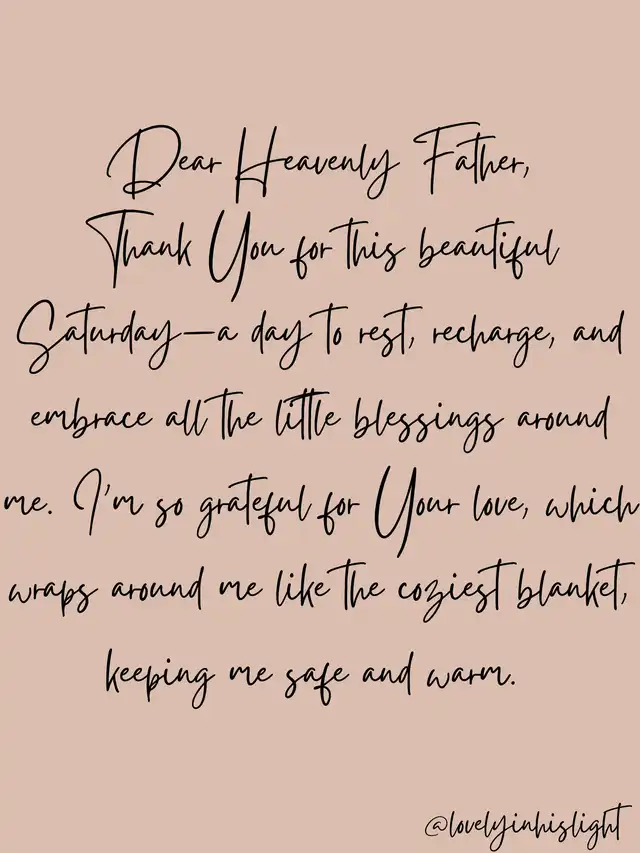 Dear Heavenly Father,
Thank You for this beautiful
Saturday—a day to rest, recharge, and
embrace all the little blessings around
me. I'm so grateful for Your love, which
wraps around me like the coziest blanket,
keeping me safe and warm.
@lovelyinhislight